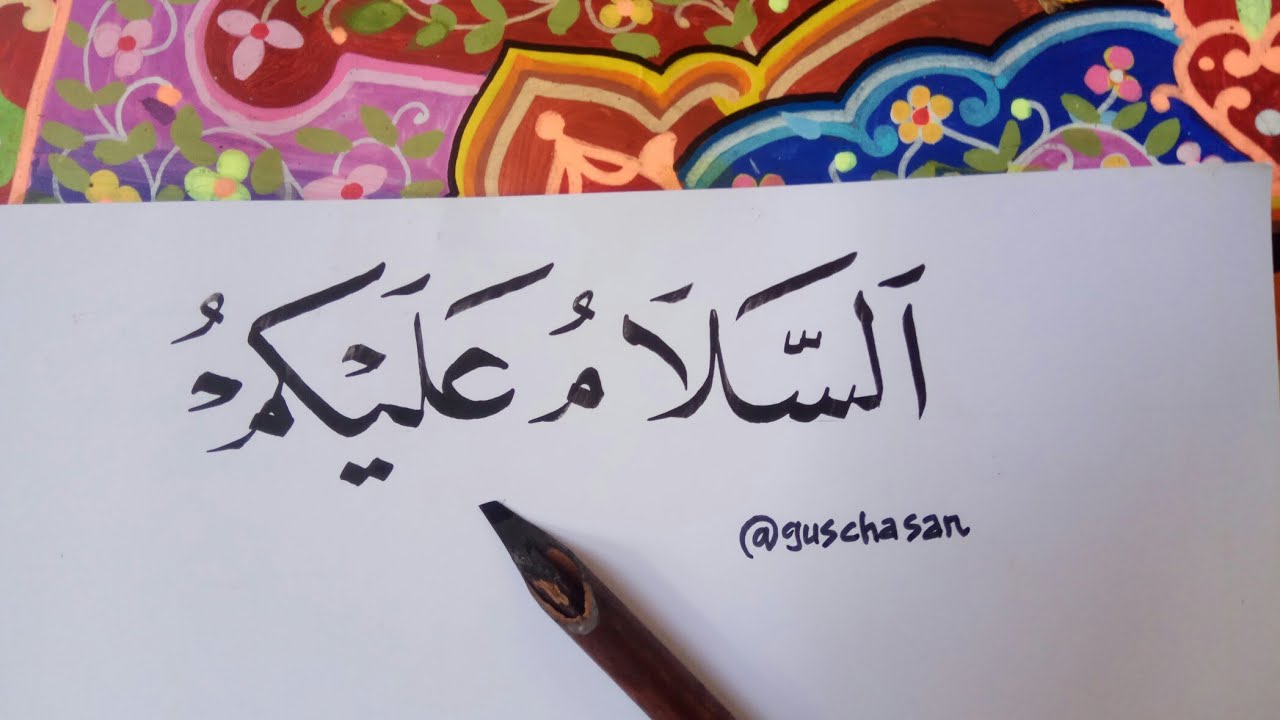 اَلسَّلاَمُ عَلَيْكُمْ
@guschasan